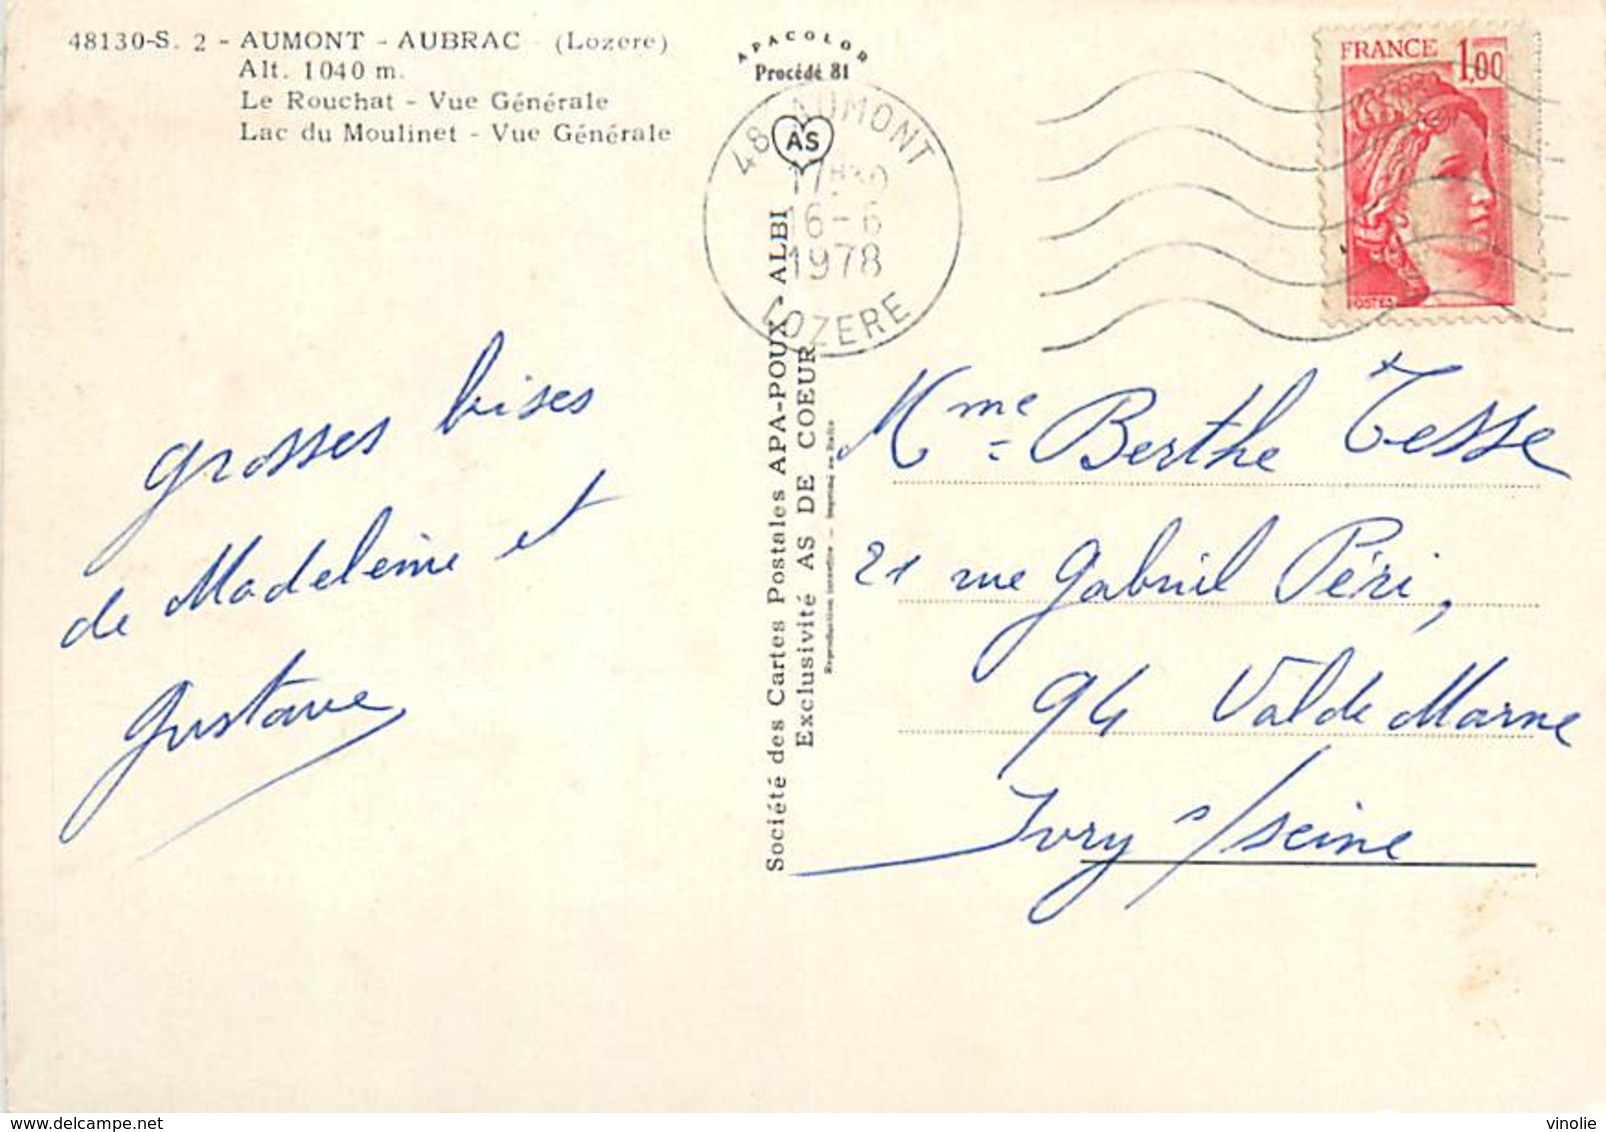 48130-S. 2 - AUMONT - AUBRAC - (Lozere)
Alt. 1040 m.
Le Rouchat - Vue Générale
Lac du Moulinet - Vue Générale
APACOLOR
Procédé 81
AS
48 AUMONT
17H30
16-6
1978
LOZERE
FRANCE 1,00
POSTES
grosses bises
de Madeleine et
Gustave
Société des Cartes Postales APA-POUX - ALBI
Exclusivité AS DE COEUR
Reproduction interdite — Imprimé en Italie
Mme Berthe Tesse
21 rue Gabriel Péri,
94 Val de Marne
Ivry s/seine
delcampe.net
vinolie